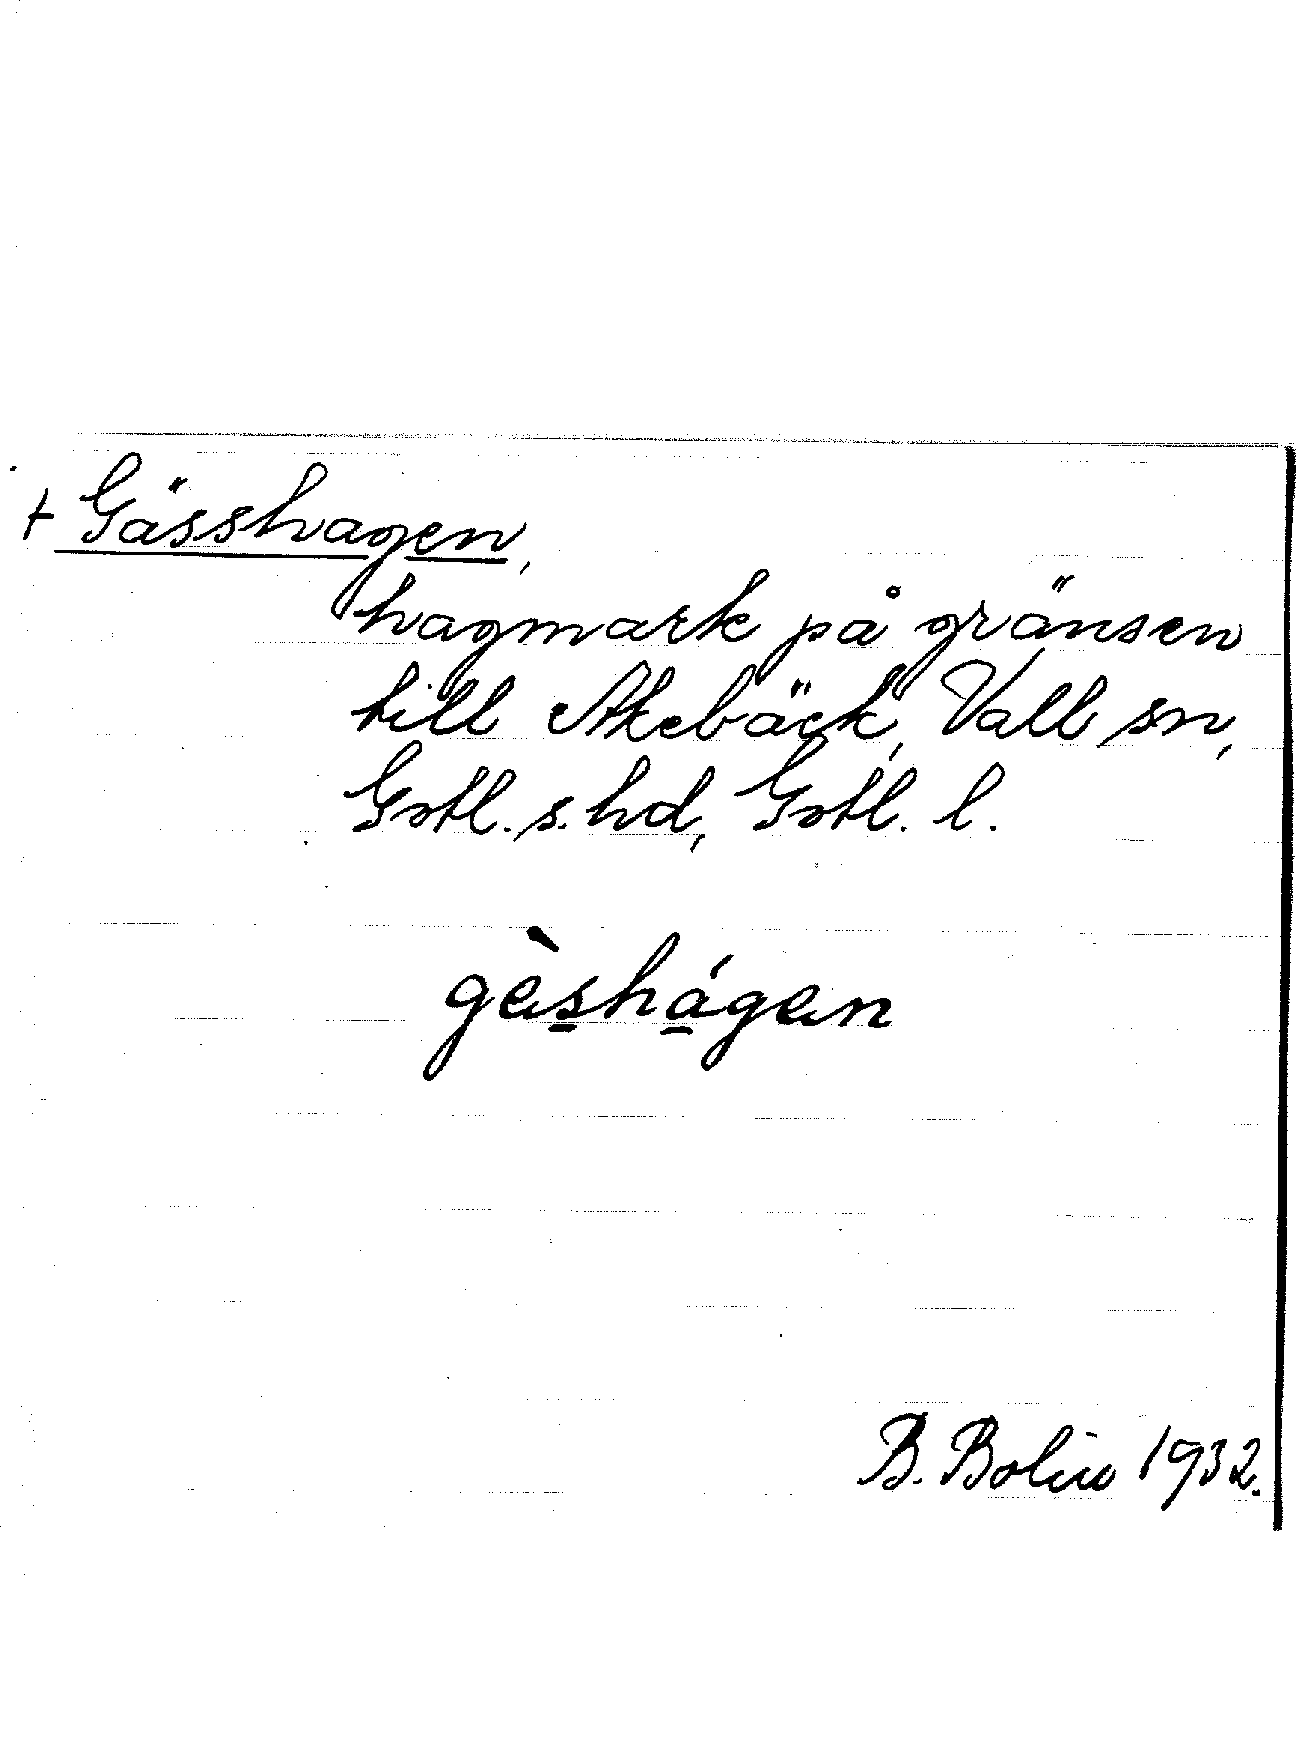 + Gässhagen,
hagmark på gränsen
till Akebäck, Vall sn,
Gotl. s. hd, Gotl. l.
gès̲há̲gen
B. Bolin 1932.